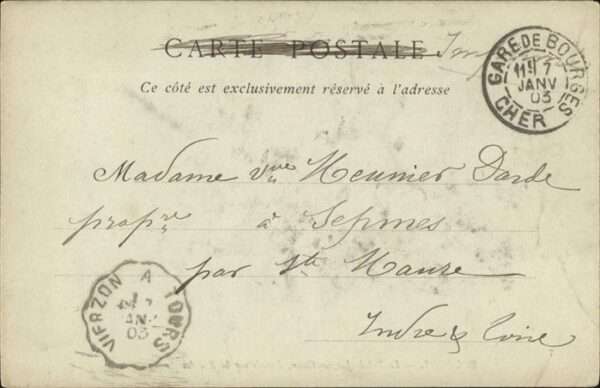 CARTE POSTALE
Ce côté est exclusivement réservé à l'adresse
GARE DE BOURGES
7
JANV
03
CHER
Madame Vve Meunier Darde
propre à Sepmes
par Ste Maure
Indre & Loire
VIERZON A TOURS
JANV
03